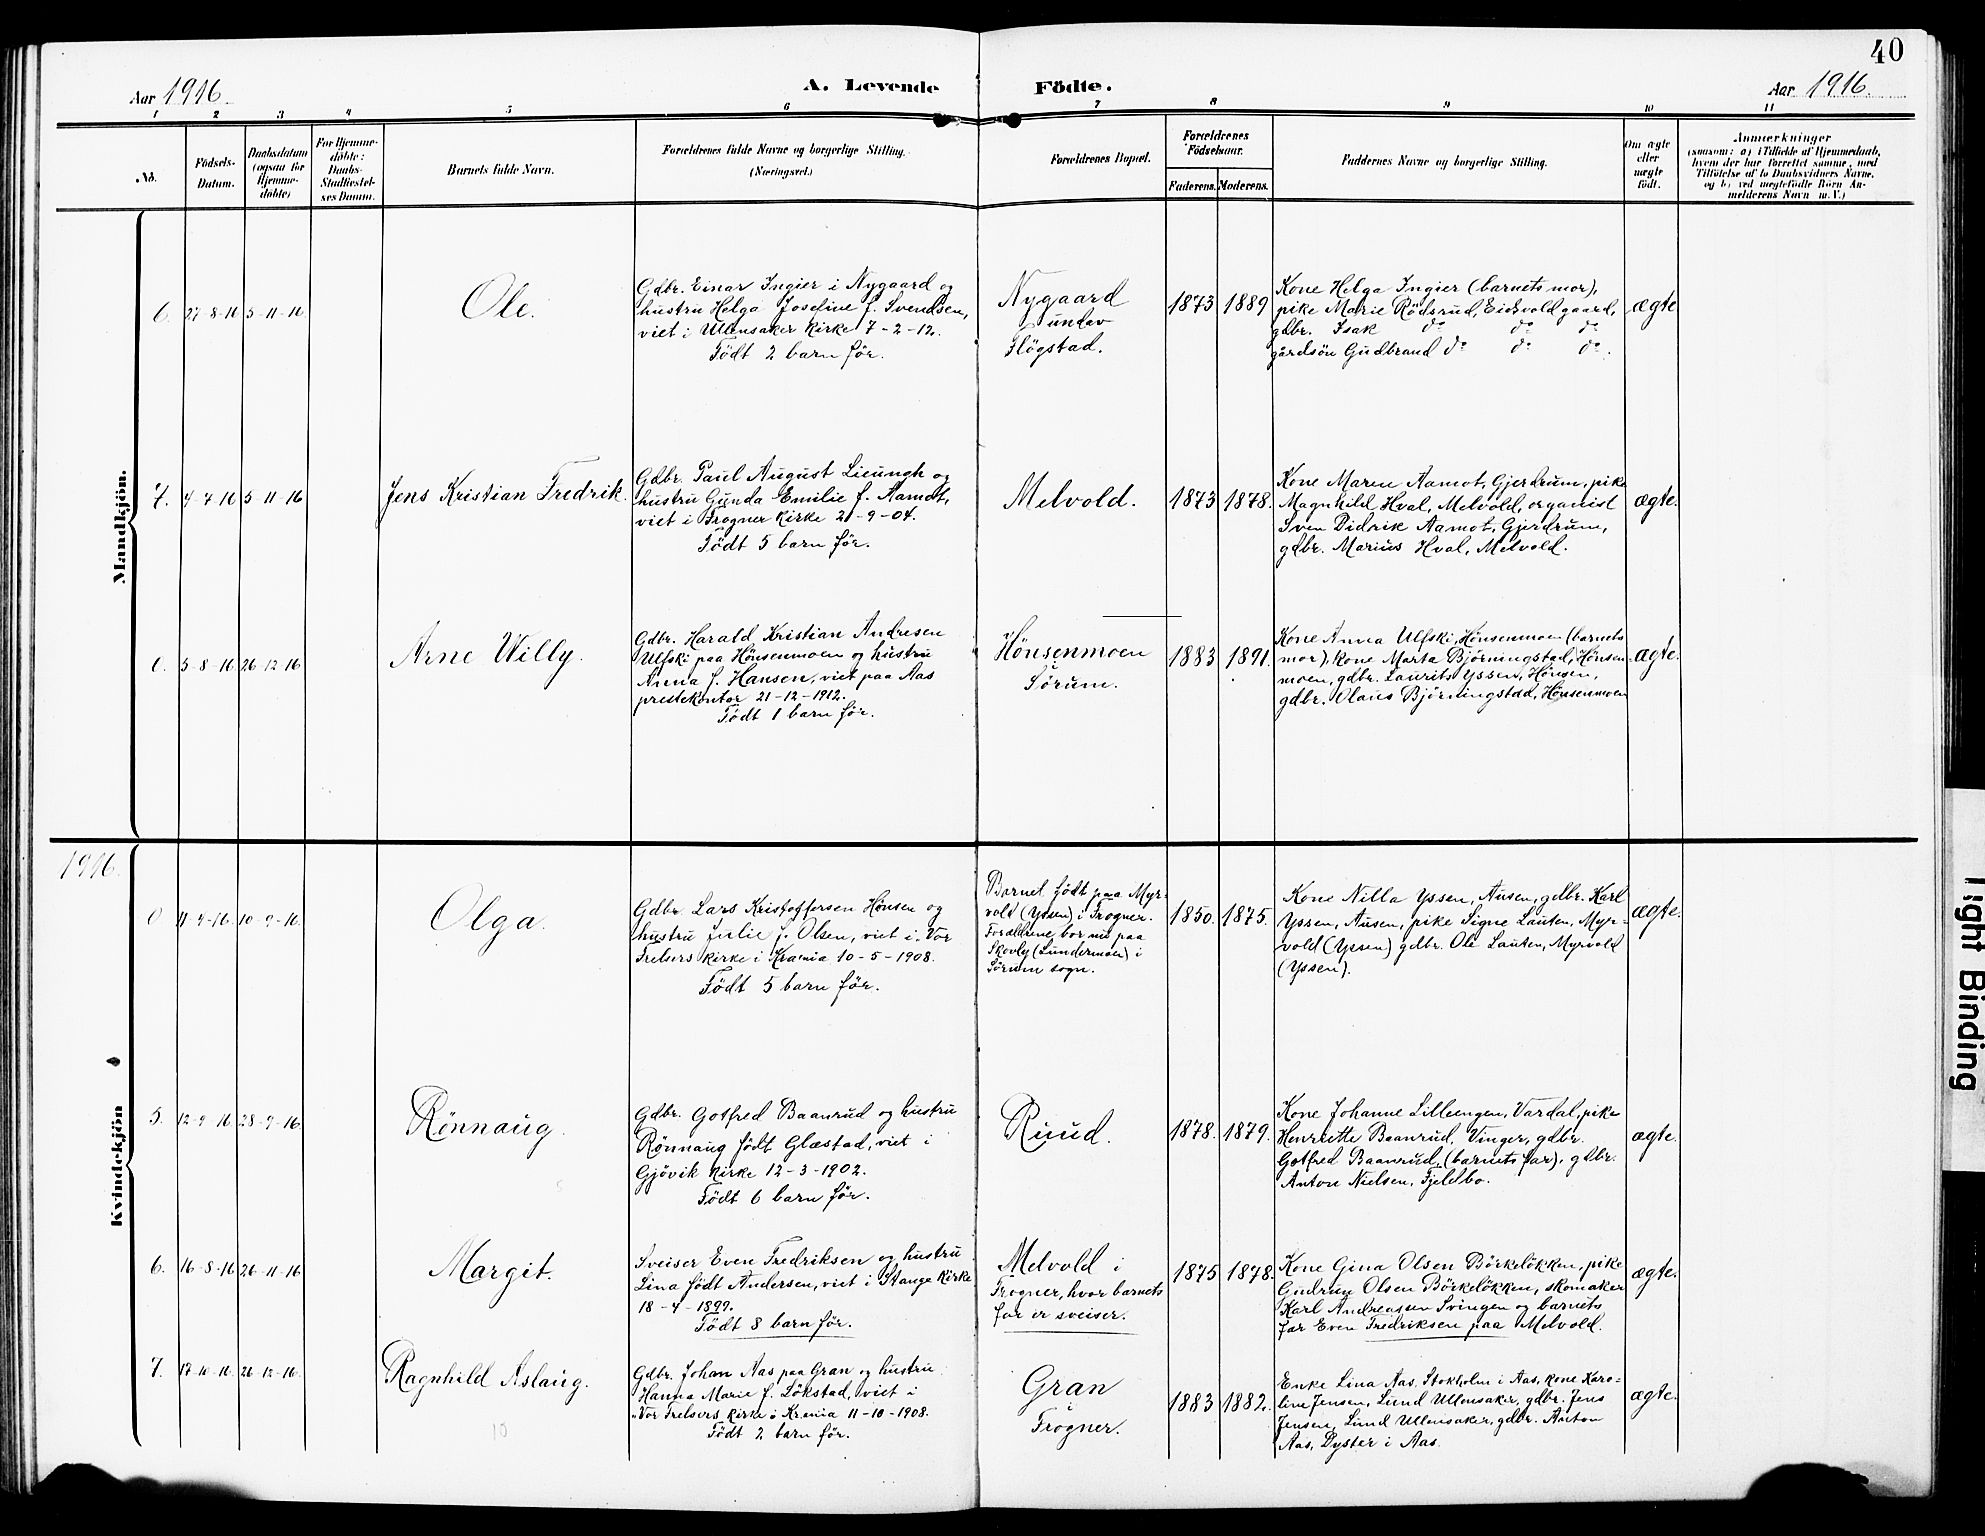 40
Aar 1916.
A. Levende Fødte.
Aar 1916.
1 2 3 4 5 6 7 8 9 10 11
No.
Fødsels-Datum.
Daabsdatum (ogsaa for Hjemme-døbte)
For Hjemme-døbte: Daabs-Stadfæstel-ses Datum.
Barnets fulde Navn.
Forældrenes fulde Navne og borgerlige Stilling. (Næringsvei.)
Forældrenes Bopæl.
Forældrenes Fødselsaar.
Faderens. Moderens.
Faddernes Navne og borgerlige Stilling.
Om ægte eller uægte født.
Anmærkninger
(saasom: a) i Tilfælde af Hjemmedaab,
hvem der har forrettet samme, med
Tilføielse af to Daabsvidners Navne,
og b) ved uægtefødte Børn An-
melderens Navn m. V.)
Mandkjøn.
6. 27-8-16 5-11-16
Ole.
Gdbr. Einar Ingier i Nygaard og
hustru Helga Josefine f. Svendsen,
viet i Ullensaker kirke 7-2-12.
Født 2 barn før.
Nygaard
undav
Flögstad.
1873 1889
Kone Helga Ingier (barnets mor),
pike Marie Rödsrud, Eidsvold gaard,
gdbr. Isak do do do
gårdsön Gudbrand do do do.
ægte
7. 4-7-16 5-11-16
Jens Kristian Fredrik.
Gdbr. Paul August Lieungh og
hustru Gunda Emilie f. Aamot,
viet i Frogner kirke 21-9-04.
Født 5 barn før.
Melvold.
1873 1878.
Kone Maren Aamot, Gjerdrum, pike
Magnhild Hval, Melvold, organist
Sven Didrik Aamot, Gjerdrum,
gdbr. Marius Hval, Melvold.
ægte.
0. 5-8-16 26-12-16
Arne Willy.
Gdbr. Harald Kristian Andresen
Ulfski paa Hönsenmoen og hustru
Anna f. Hansen, viet paa Aas
prestekontor 21-12-1912.
Født 1 barn før.
Hönsenmoen
i
Sörum.
1883 1891.
Kone Anna Ulfski, Hönsenmoen (barnets
mor), kone Marta Björningstad, Hönsen-
moen, gdbr. Laurits Yssen, Hönsen,
gdbr. Olaus Björningstad, Hönsenmoen
ægte.
1916.
Kvindekjøn
0 11-4-16. 10-9-16.
Olga.
Gdbr. Lars Kristoffersen Hönsen og
hustru Julie f. Olsen, viet i Vor
Frelsers kirke i Krania 10-5-1908.
Født 5 barn før.
Barnet født paa Myr-
vold (Yssen) i Frogner.
Forældrene bor nu paa
Skovly (Lundermoen) i
Sörum sogn.
1850. 1875.
Kone Nilla Yssen, Ausen, gdbr. Karl
Yssen, Ausen, pike Signe Lauten, Myr-
vold (Yssen) gdbr. Ole Lauten, Myrvold
(Yssen).
ægte.
5. 12-9-16. 28-9-16.
Rönnaug.
Gdbr. Gotfred Baanrud og hustru
Rönnaug født Glæstad, viet i
Gjövik kirke 12-3-1902.
Født 6 barn før.
Ruud.
1878. 1879.
Kone Johanne Lilleengen, Vardal, pike
Henriette Baanrud, Vinger, gdbr.
Gotfred Baanrud, (barnets far), gdbr.
Anton Nielsen, Fjeldbo.
ægte.
6. 16-8-16 26-11-16
Margit.
Sveiser Even Fredriksen og hustru
Lina født Andersen, viet i Stange kirke
18-4-1899.
Født 8 barn før.
Melvold i
Frogner, hvor barnets
far er sveiser.
1875 1878.
Kone Gina Olsen Börkelökken, pike
Gudrun Olsen Börkelökken, skomaker
Karl Andreassen Svingen og barnets
far Even Fredriksen paa Melvold.
ægte.
7. 17-10-16. 26-12-16.
Ragnhild Aslaug.
Gdbr. Johan Aas paa Gran og hustru
Hanna Marie f. Lökstad, viet i
"Vor Frelsers kirke i Krania 11-10-1908.
Født 2 barn før.
Gran
i
Frogner.
1883 1882.
Enke Lina Aas, Stokholm i Aas, kone Karo-
line Jensen, Lund Ullensaker, gdbr. Jens
Jensen, Lund Ullensaker, gdbr. Anton
Aas, Dyster i Aas.
ægte.
10
Tight Binding